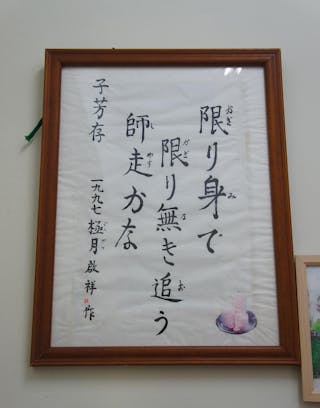 限り身で
限り無き追う
師走かな
子芳存
一九九七極月啟祥作